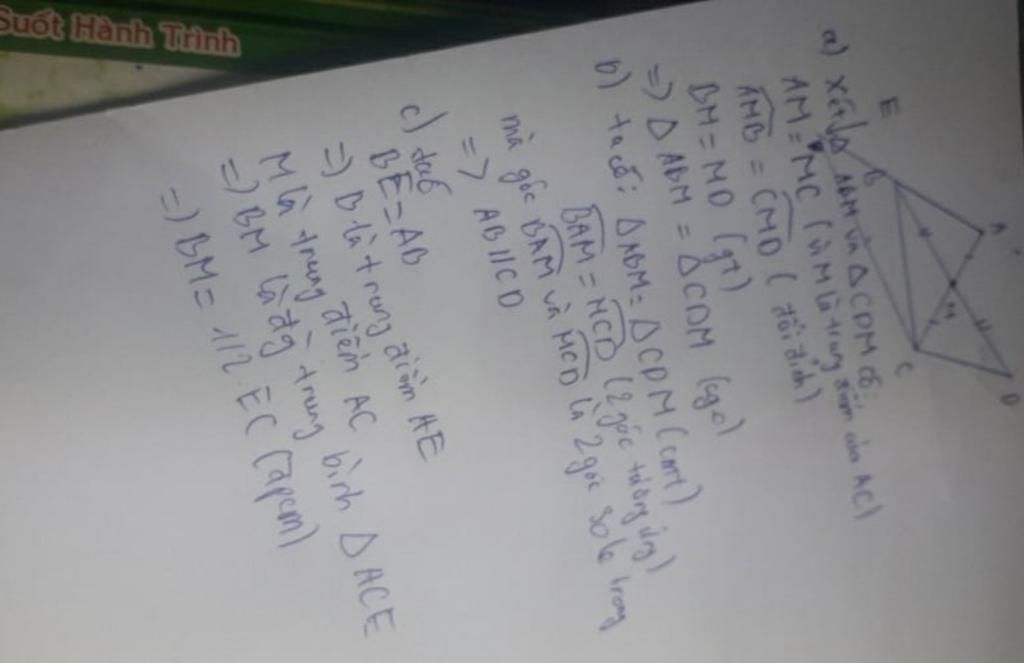 Suốt Hành Trình
A
B
E
M
C
D
a) Xét Δ ABM và Δ CDM có:
AM = MC (vì M là trung điểm của AC)
AMB = CMD (đối đỉnh)
BM = MD (gt)
=) Δ ABM = Δ CDM (cgc)
b) ta có: Δ ABM = Δ CDM (cmt)
BAM = MCD (2 góc tương ứng)
mà góc BAM và MCD là 2 góc so le trong
=> AB // CD
c) ta có
BE = AB
=) B là trung điểm AE
M là trung điểm AC
=) BM là đg trung bình Δ ACE
=) BM = 1/2 . EC (đpcm)